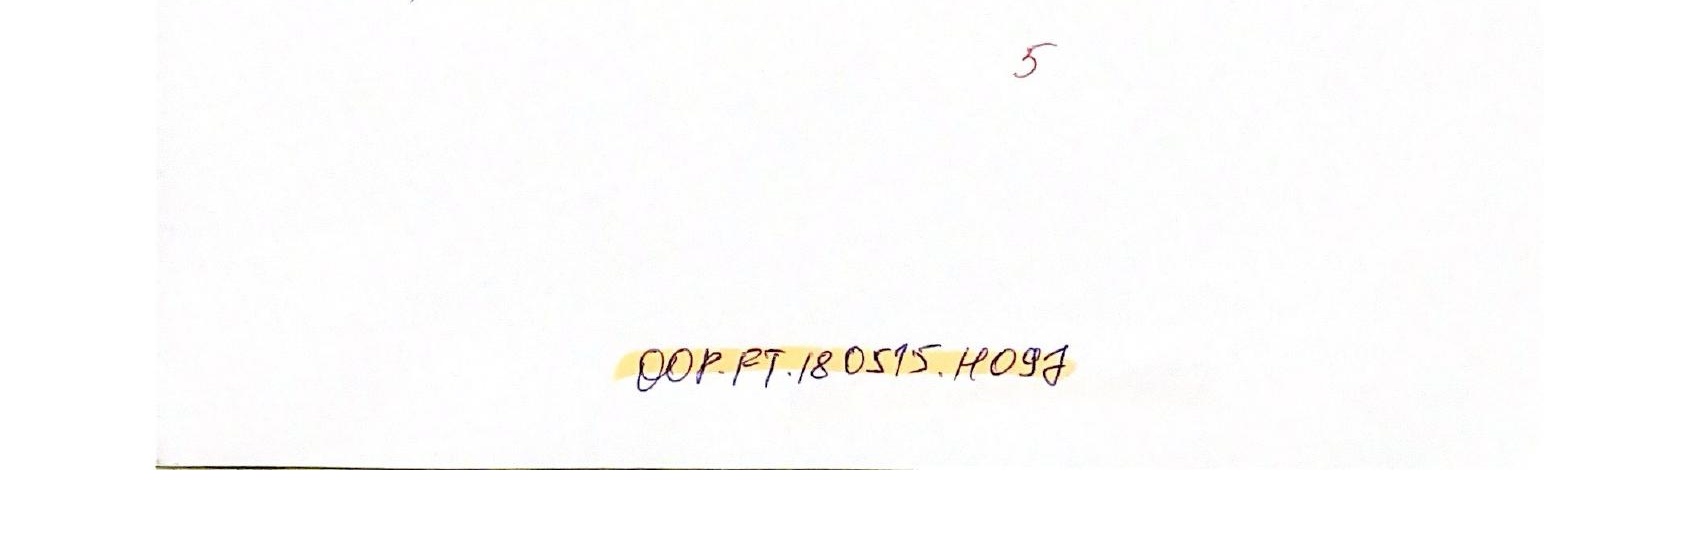 5
OOP.PT.180515.H097